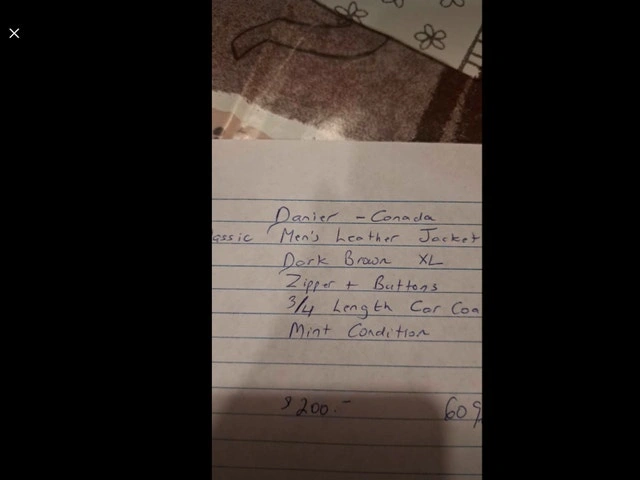 Danier - Canada
assic Men's Leather Jacket
Dark Brown XL
Zipper + Buttons
3/4 Length Car Coa
Mint Condition
$200.- 609